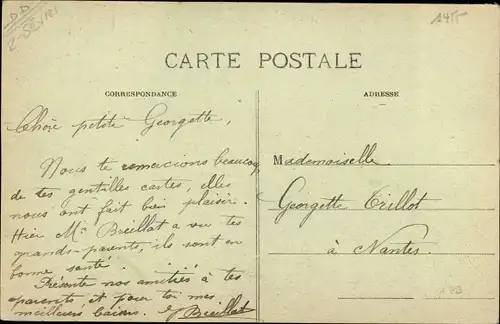 2-Sèvres
CARTE POSTALE
CORRESPONDANCE
ADRESSE
Chère petite Georgette,
Nous te remercions beaucoup
de tes gentilles cartes, elles
nous ont fait bien plaisir.
Hier Mr Breillat a vu tes
grands-parents, ils sont en
bonne santé.
Présente nos amitiés à tes
parents, et pour toi mes
meilleurs baisers. Breillat
Mademoiselle
Georgette Trillot
à Nantes.